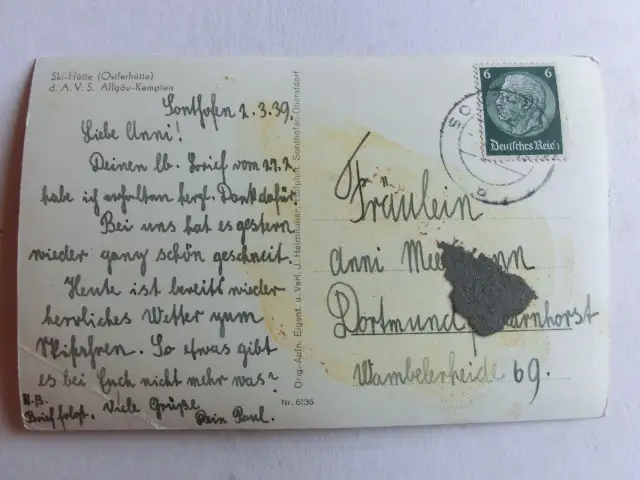 Ski-Hütte (Ostlerhütte)
d. A. V. S. Allgäu-Kempten
Sonthofen 2.3.39.
Liebe Anni!
Deinen lb. Brief vom 27.2.
habe ich erhalten herzl. Dank dafür.
Bei uns hat es gestern
wieder ganz schön geschneit.
Heute ist bereits wieder
herrliches Wetter zum
Skifahren. So etwas gibt
es bei Euch nicht mehr was?
N.B.
Brief folgt. Viele Grüße
Dein Paul.
Orig.-Aufn. Eigent. u. Verl. J. Heimhuber, Sonthofen-Oberstdorf
Nr. 6136
6 6
Deutsches Reich
Fräulein
Anni
Dortmund
Wambelerheide 69.